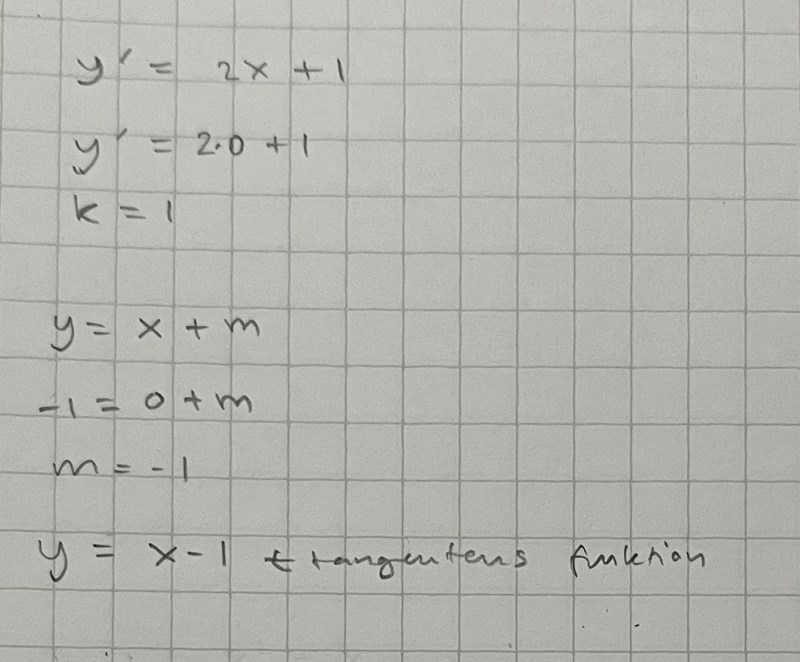 y' = 2x + 1
y' = 2·0 + 1
k = 1
y = x + m
-1 = 0 + m
m = -1
y = x - 1 t tangentens funktion